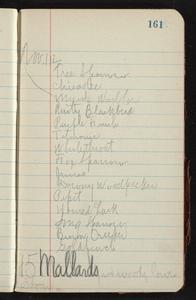 161
Tree Sparrow
Chicadee
Myrtle Warbler
Rusty Blackbird
Purple Finch
Titmouse
Whitethroat
Fox Sparrow
Juncos
Downy Woodpecker
Pipit
Horned Lark
Song Sparrow
Brown Creeper
Goldfinch
15 Mallards